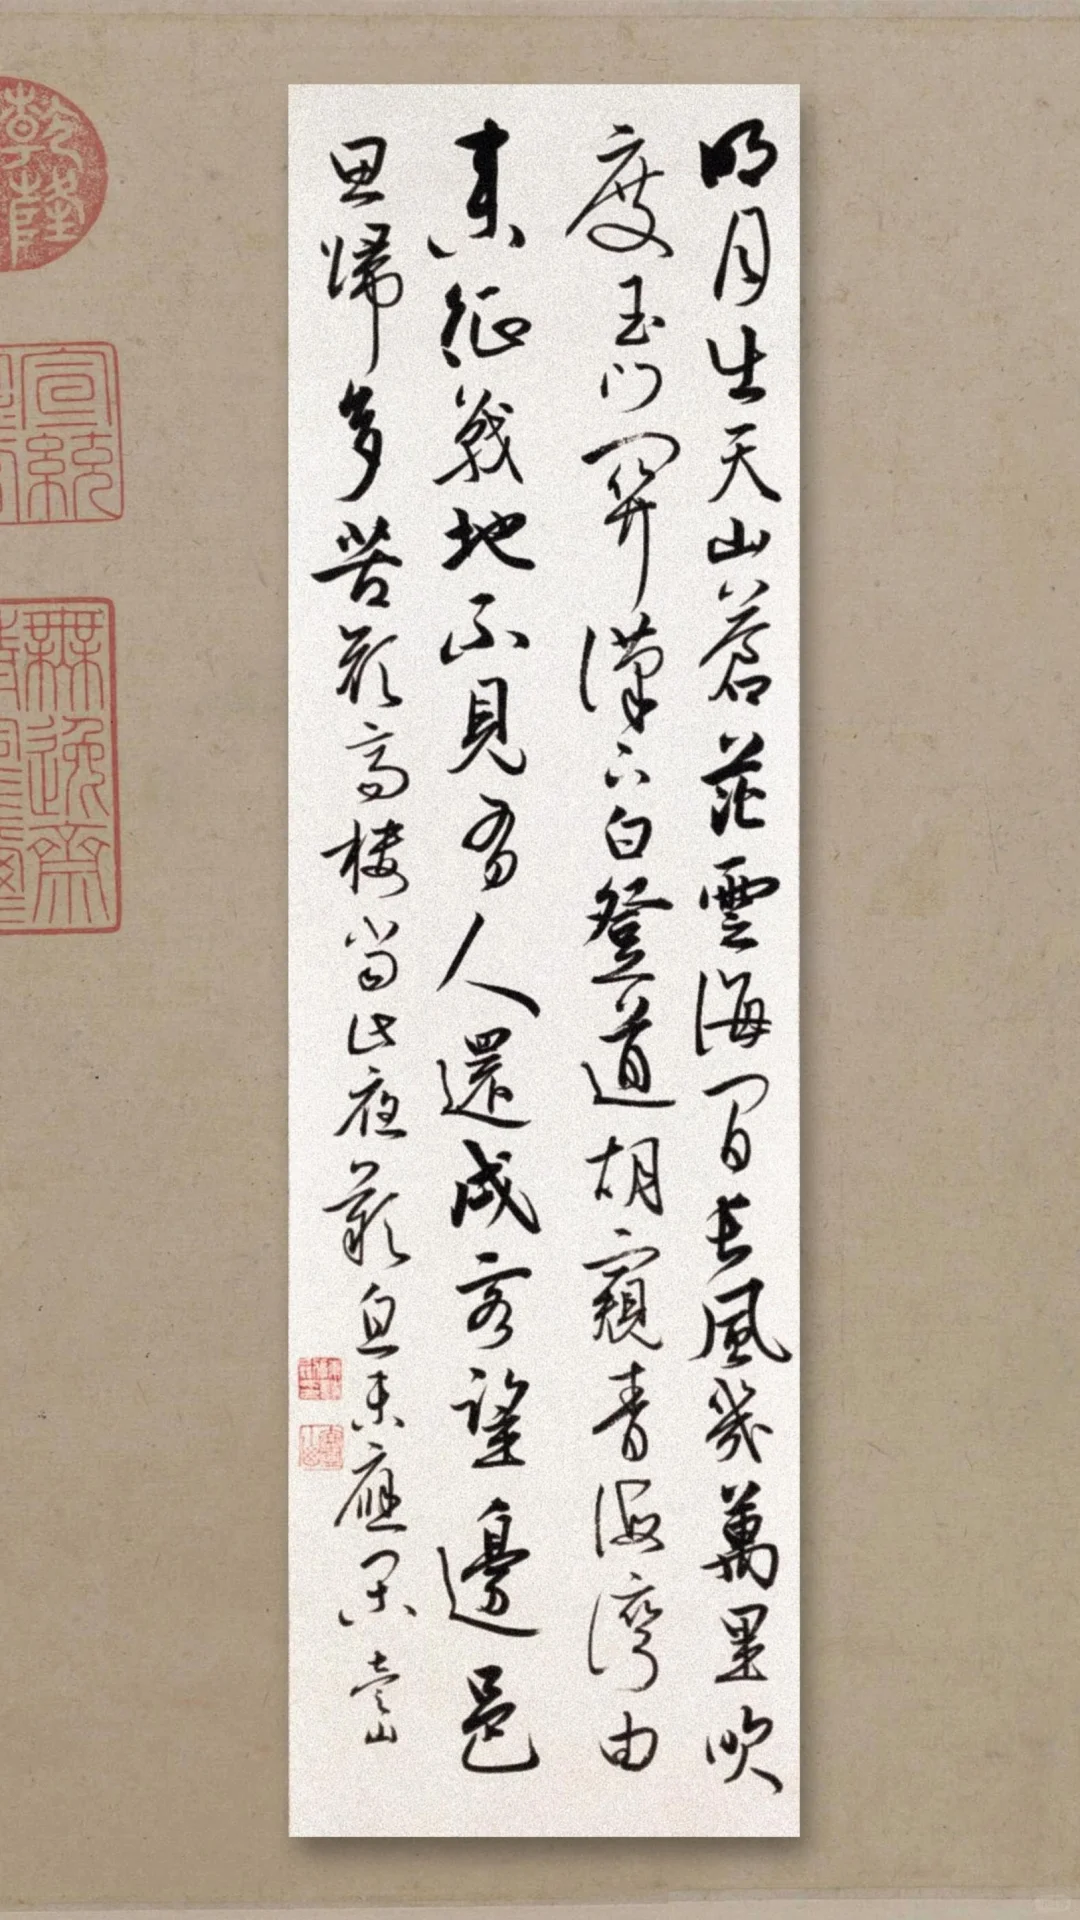 明月出天山蒼茫雲海間長風幾萬里吹
度玉門關漢下白登道胡窺青海灣由
來征戰地不見有人還戍客望邊邑
思歸多苦顏高樓當此夜歎息未應閑
山
乾隆
宣統
無逸齋